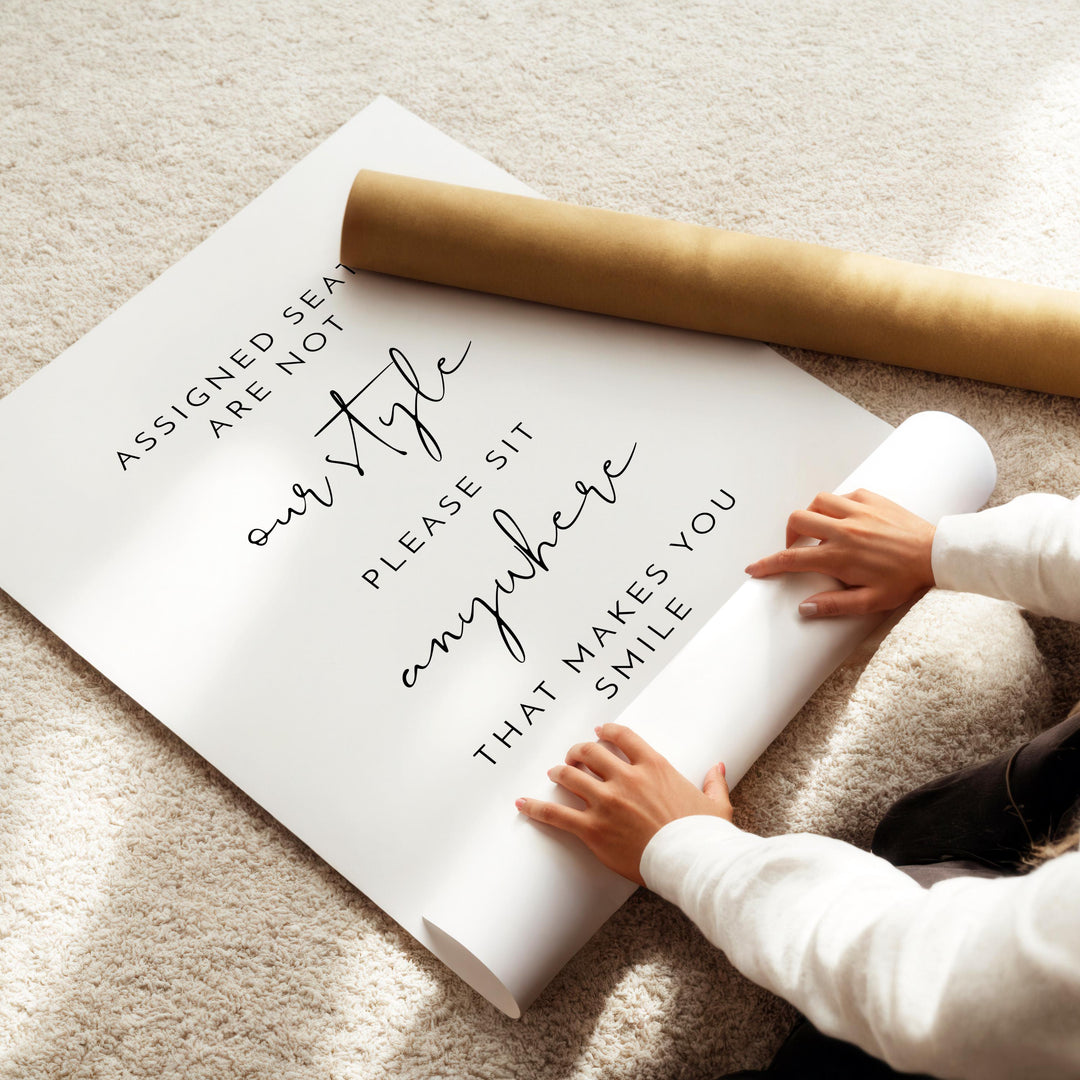 ASSIGNED SEAT
ARE NOT
our style
PLEASE SIT
anywhere
THAT MAKES YOU
SMILE